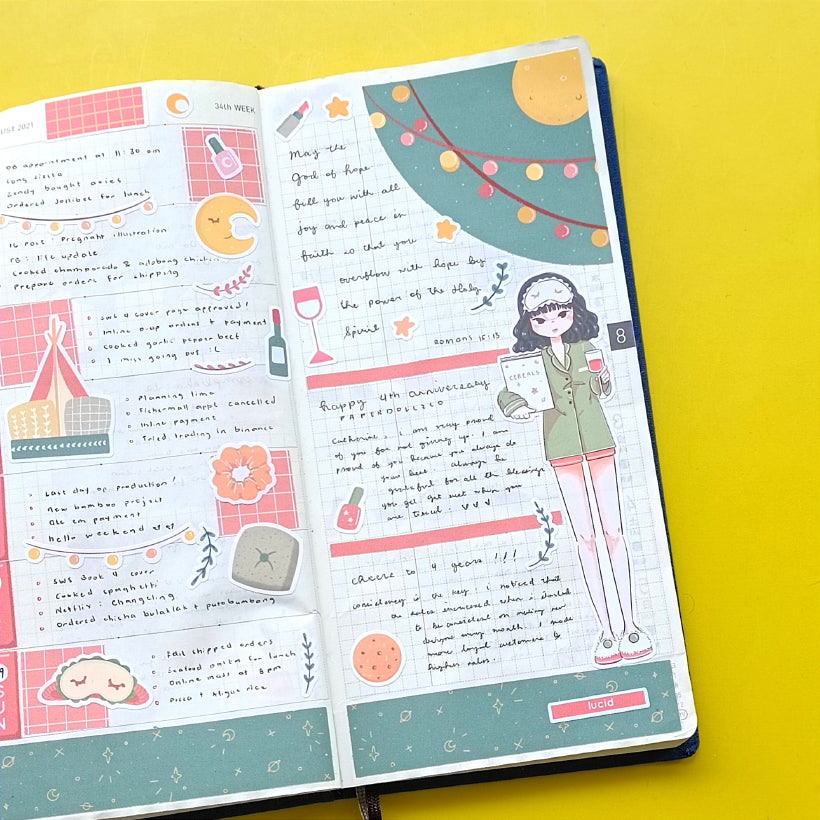 UST 2021
34th WEEK
OB appointment at 11:30 am
Long siesta
Zendy bought
Ordered Jollibee for lunch
IG Post : Pregnant illustration
FB : life update
Cooked champorado & adobong
Prepare orders for shipping
SWS 4 cover page approved!
Inline o-up orders + payment
cooked garlic pepper beef
I miss going out :(
Planning lima
Fishermall appt cancelled
Inline payment
Tried trading in binance
Last day of production!
New bamboo project
payment
hello weekend
SWS Book 4 cover
Cooked spaghetti
Netflix : Changeling
Ordered chicha bulaklak + putobumbong
Edit shipped orders
Seafood for lunch
Online mass at 8 pm
Pizza + Aligue rice
9
SUN
May the
God of hope
fill you with all
Joy and peace in
faith so that you
overflow with hope by
the power of the Holy
Spirit
ROMANS 15:13
happy 4th anniversary
PAPERDOLL2C0
Catherine, I am very proud
of you for not giving up. I am
proud of you because you always do
your best. Always be
grateful for all the blessings
you get. Get rest when you
are tired.
CEREALS
8
cheers to 4 years!!!
consistency is the key. I noticed that
the sales increased when I started
to be consistent on making new
designs every month. I made
more loyal customers &
higher sales.
lucid